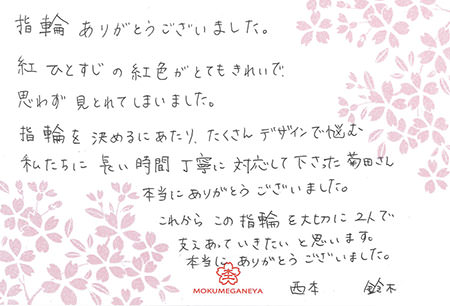 指輪 ありがとうございました。
紅ひとすじの紅色がとてもきれいで、
思わず見とれてしまいました。
指輪を決めるにあたり、たくさんデザインで悩む
私たちに長い時間丁寧に対応して下さった菊田さん
本当にありがとうございました。
これからこの指輪を大切に2人で
支えあっていきたいと思います。
本当にありがとうございました。
MOKUMEGANEYA
西本 鈴木